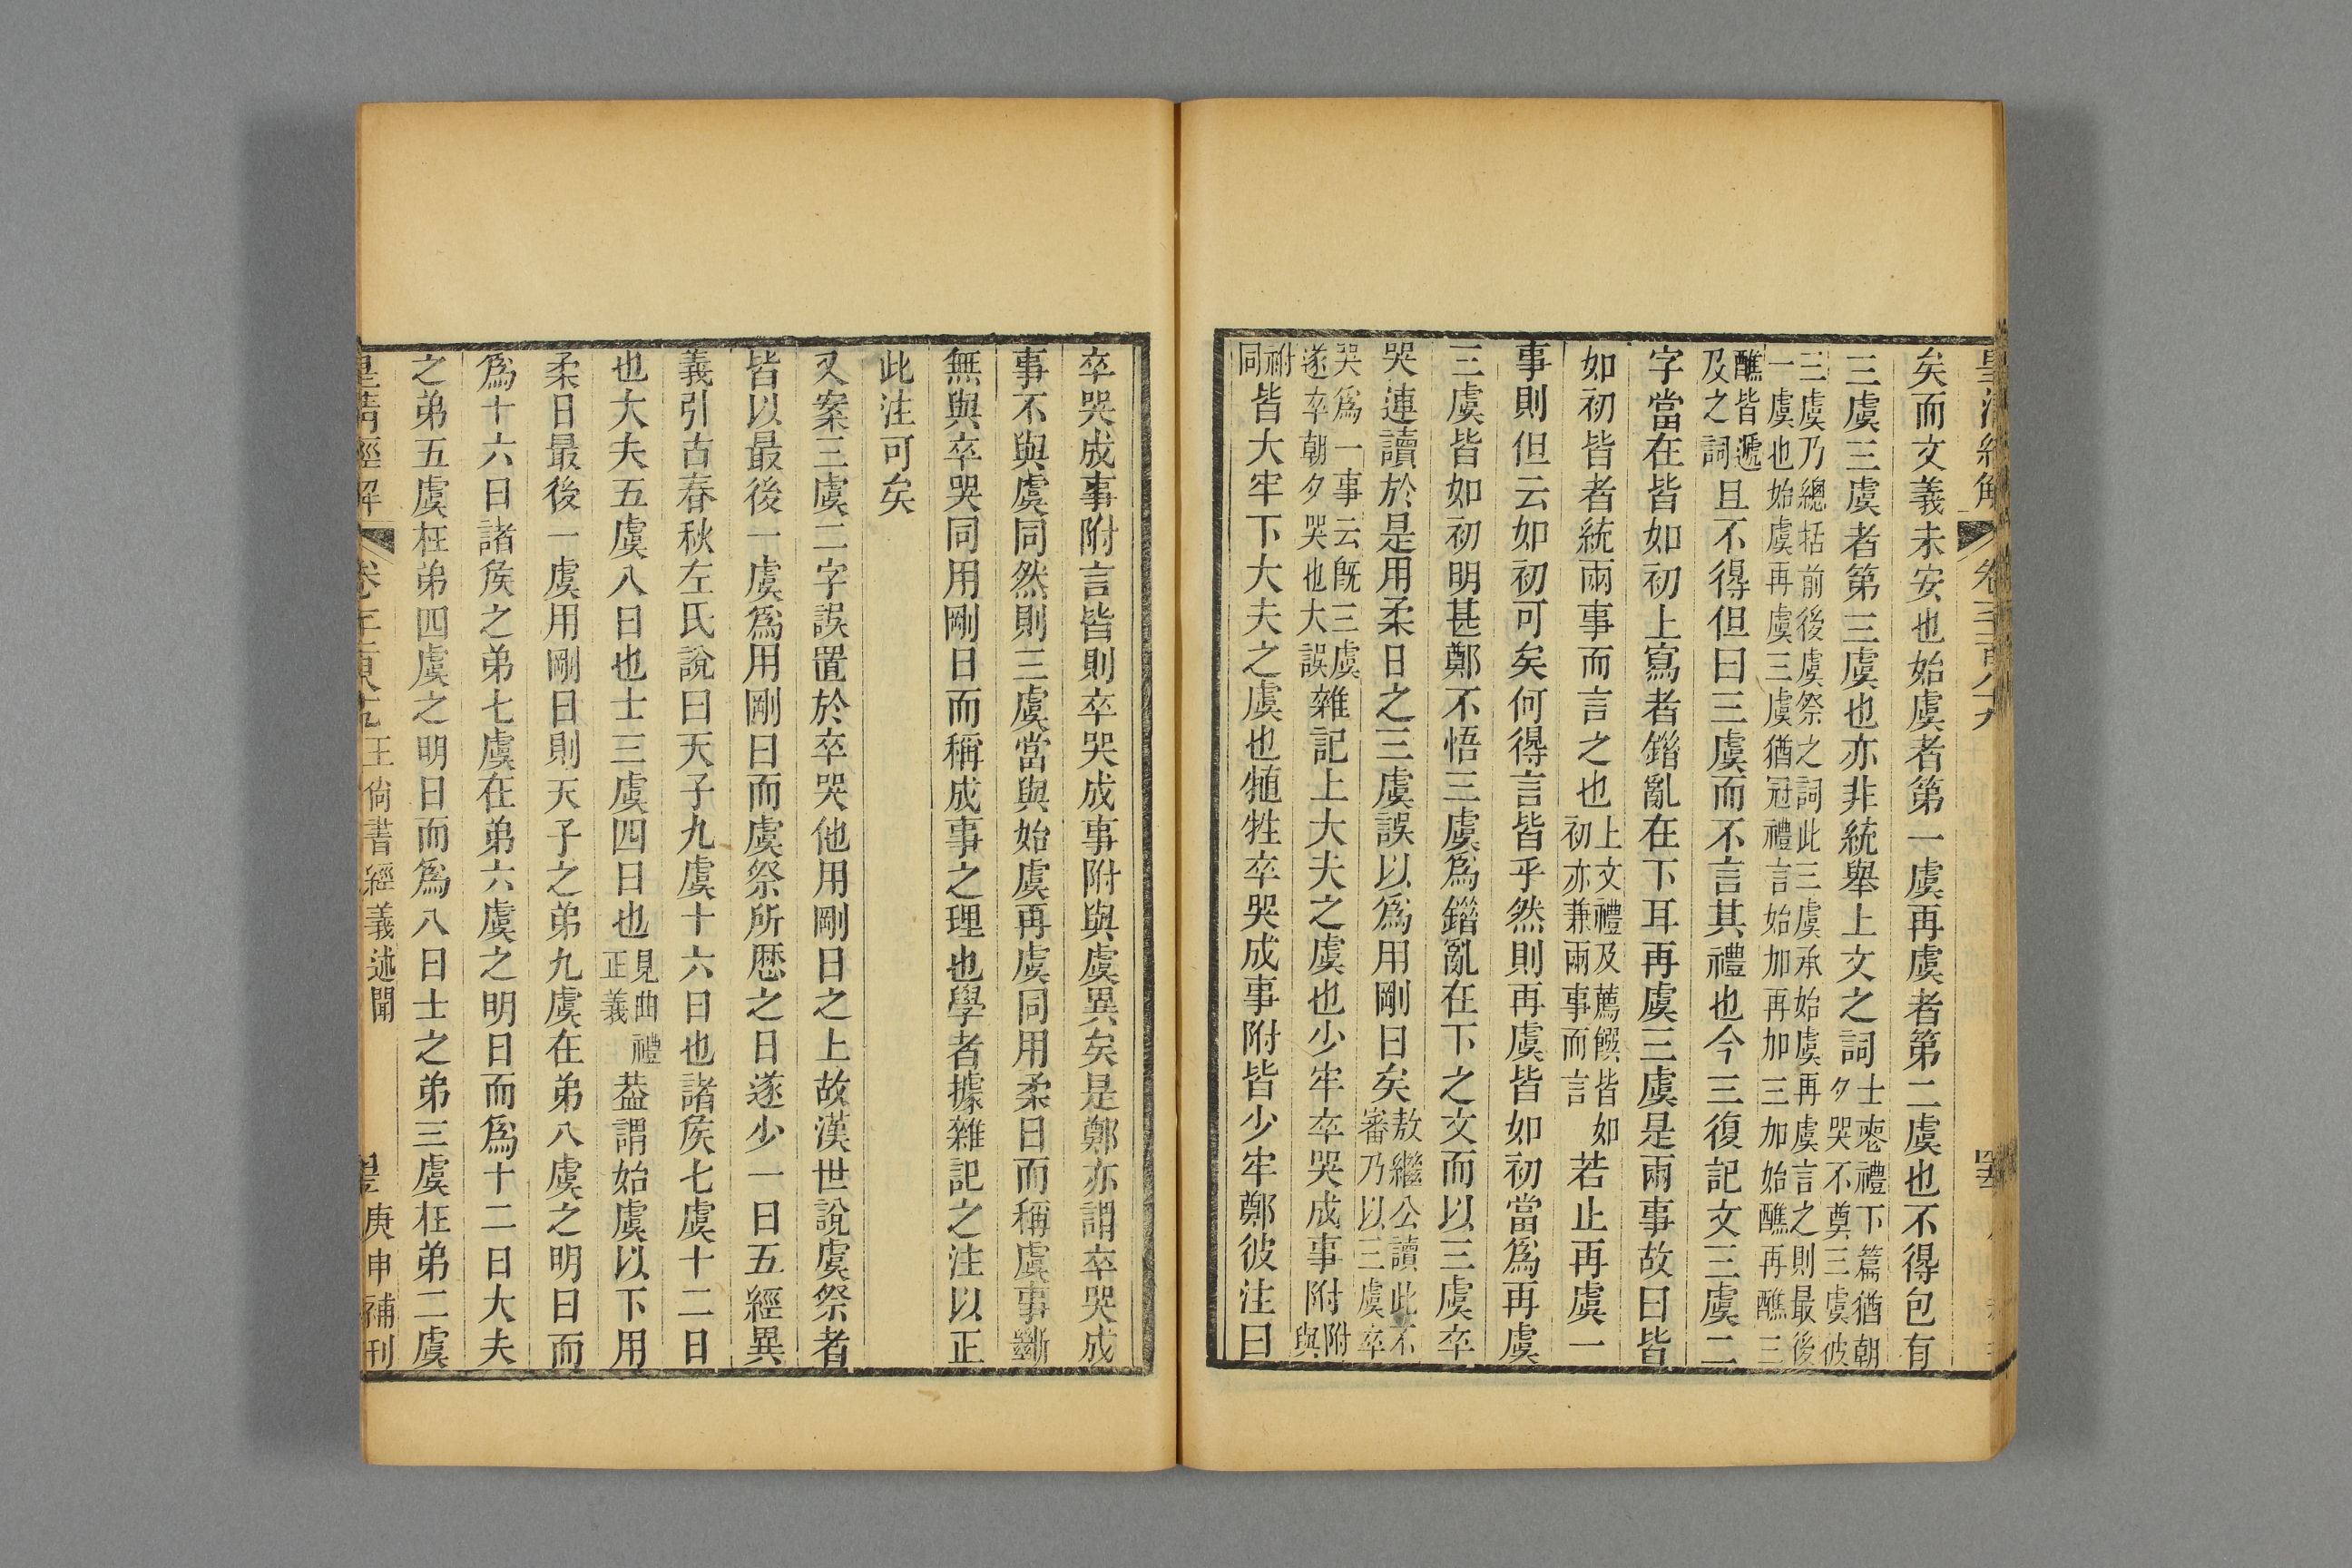 矣而文義未安也始虞者第一虞再虞者第二虞也不得包有
三虞三虞者第三虞也亦非統舉上文之詞士喪禮下篇猶朝夕哭不奠三虞彼
三虞乃總括前後虞祭之詞此三虞承始虞再虞言之則最後一虞也始虞再虞三虞猶冠禮言始加再加三加始醮再醮三
醮皆遞及之詞且不得但曰三虞而不言其禮也今三復記文三虞二
字當在皆如初上寫者錯亂在下耳再虞三虞是兩事故曰皆
如初皆者統兩事而言之也上文禮及薦饌皆如初亦兼兩事而言若止再虞一
事則但云如初可矣何得言皆乎然則再虞皆如初當為再虞
三虞皆如初明甚鄭不悟三虞為錯亂在下之文而以三虞卒
哭連讀於是用柔日之三虞誤以為用剛日矣敖繼公讀此不審乃以三虞卒
哭為一事云既三虞遂卒朝夕哭也大誤雜記上大夫之虞也少牢卒哭成事附附與
祔同皆大牢下大夫之虞也犆牲卒哭成事附皆少牢鄭彼注曰
卒哭成事附言皆則卒哭成事附與虞異矣是鄭亦謂卒哭成
事不與虞同然則三虞當與始虞再虞同用柔日而稱虞事斷
無與卒哭同用剛日而稱成事之理也學者據雜記之注以正
此注可矣
又案三虞二字誤置於卒哭他用剛日之上故漢世說虞祭者
皆以最後一虞為用剛日而虞祭所歷之日遂少一日五經異
義引古春秋左氏說曰天子九虞十六日也諸矦七虞十二日
也大夫五虞八日也士三虞四日也見曲禮正義葢謂始虞以下用
柔日最後一虞用剛日則天子之弟九虞在弟八虞之明日而
為十六日諸矦之弟七虞在弟六虞之明日而為十二日大夫
之弟五虞在弟四虞之明日而為八日士之弟三虞在弟二虞
皇清經解
王尚書經義述聞
庚申補刊